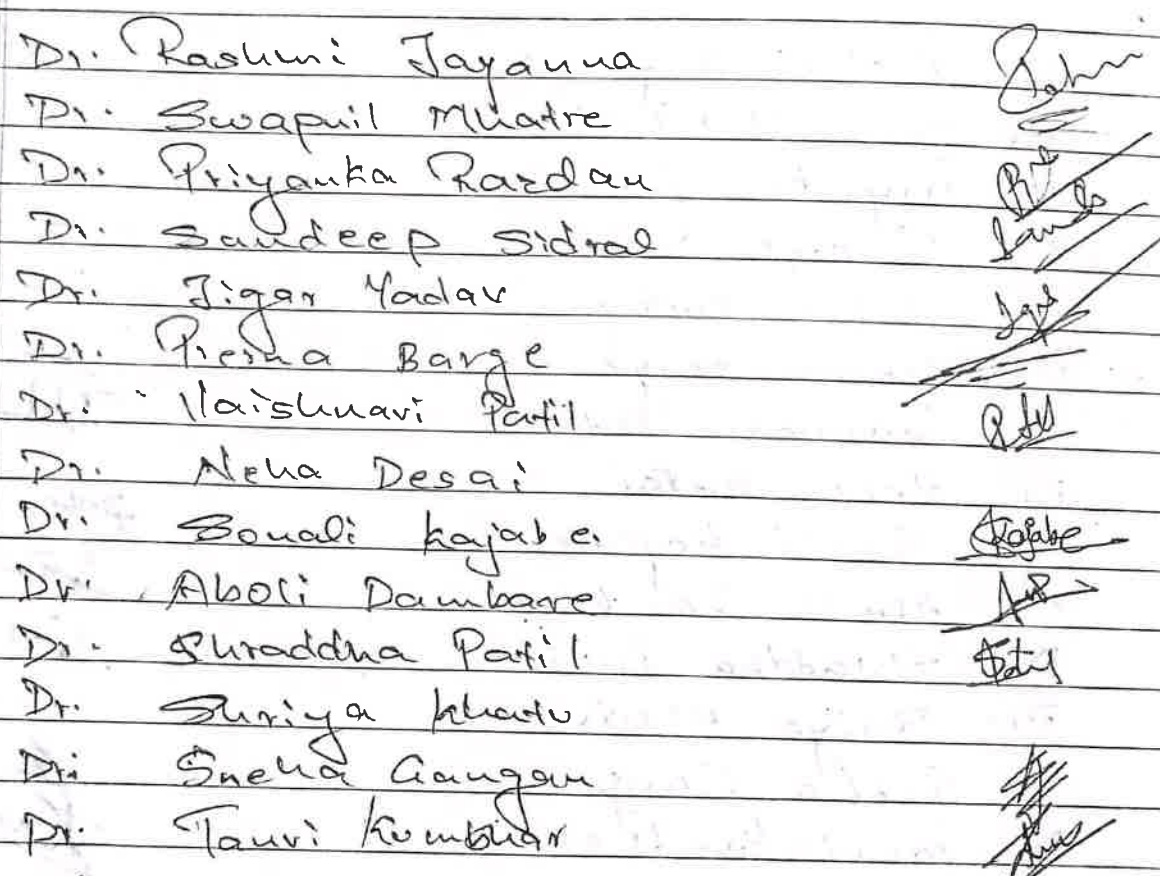 Dr. Rashmi Jayanna
Dr. Swapnil Mhatre
Dr. Priyanka Razdan
Dr. Sandeep Sidral
Dr. Jigar Yadav
Dr. Prerna Barge
Dr. Vaishnavi Patil
Dr. Neha Desai
Dr. Sonali Kajabe. Kajabe
Dr. Aboli Dambare.
Dr. Shraddha Patil.
Dr. Shriya Khatu
Dr. Sneha Gangan
Dr. Tanvi Kumbhar